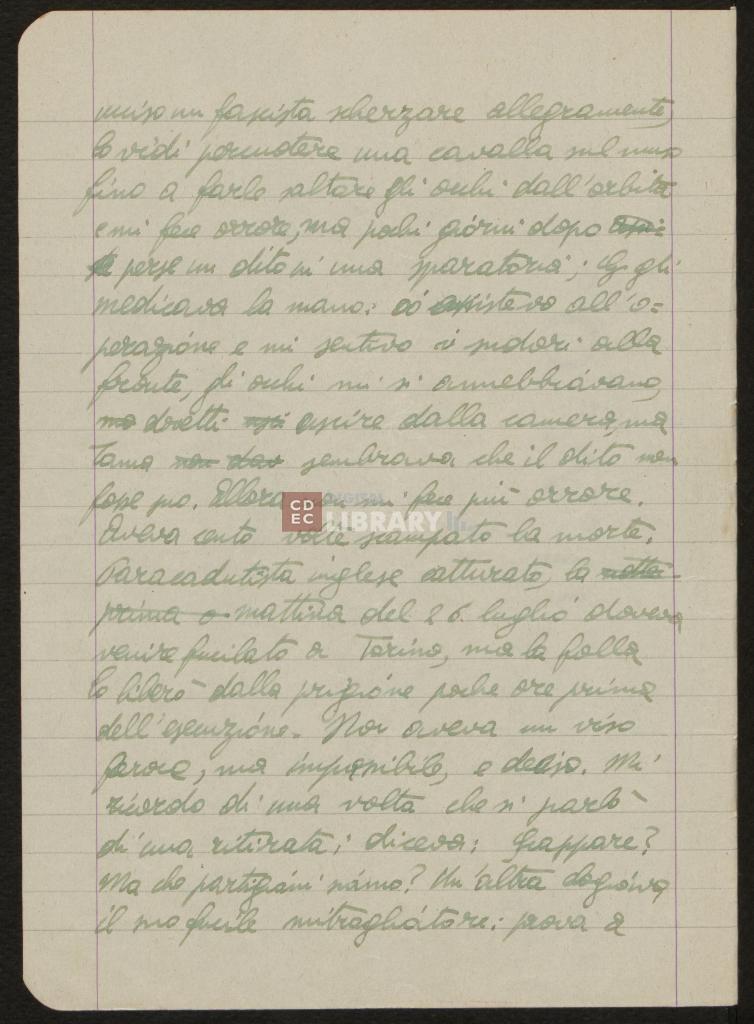 ucciso un fascista scherzare allegramente,
lo vidi percuotere una cavalla sul muso
fino a farle saltare gli occhi dall'orbita
e mi fece orrore, ma pochi giorni dopo
perse un dito in una sparatoria; G. gli
medicava la mano: io assistevo all'o=
perazione e mi sentivo i sudori alla
fronte, gli occhi mi si annebbiavano,
ma dovetti uscire dalla camera, ma
Tama non dav sembrava che il dito non
fosse suo. Allora non mi fece più orrore.
Aveva cento volte scampato la morte.
Paracadutista inglese catturato, la notte
prima o mattina del 26 luglio doveva
venire fucilato a Torino, ma la folla
lo liberò dalla prigione poche ore prima
dell'esecuzione. Non aveva un viso
feroce, ma impassibile, e deciso. Mi
ricordo di una volta che si parlò
di una ritirata; diceva: Scappare?
Ma che partigiani siamo? Un'altra
il suo fucile mitragliatore: prova a
CDEC
DIGITAL
LIBRARY